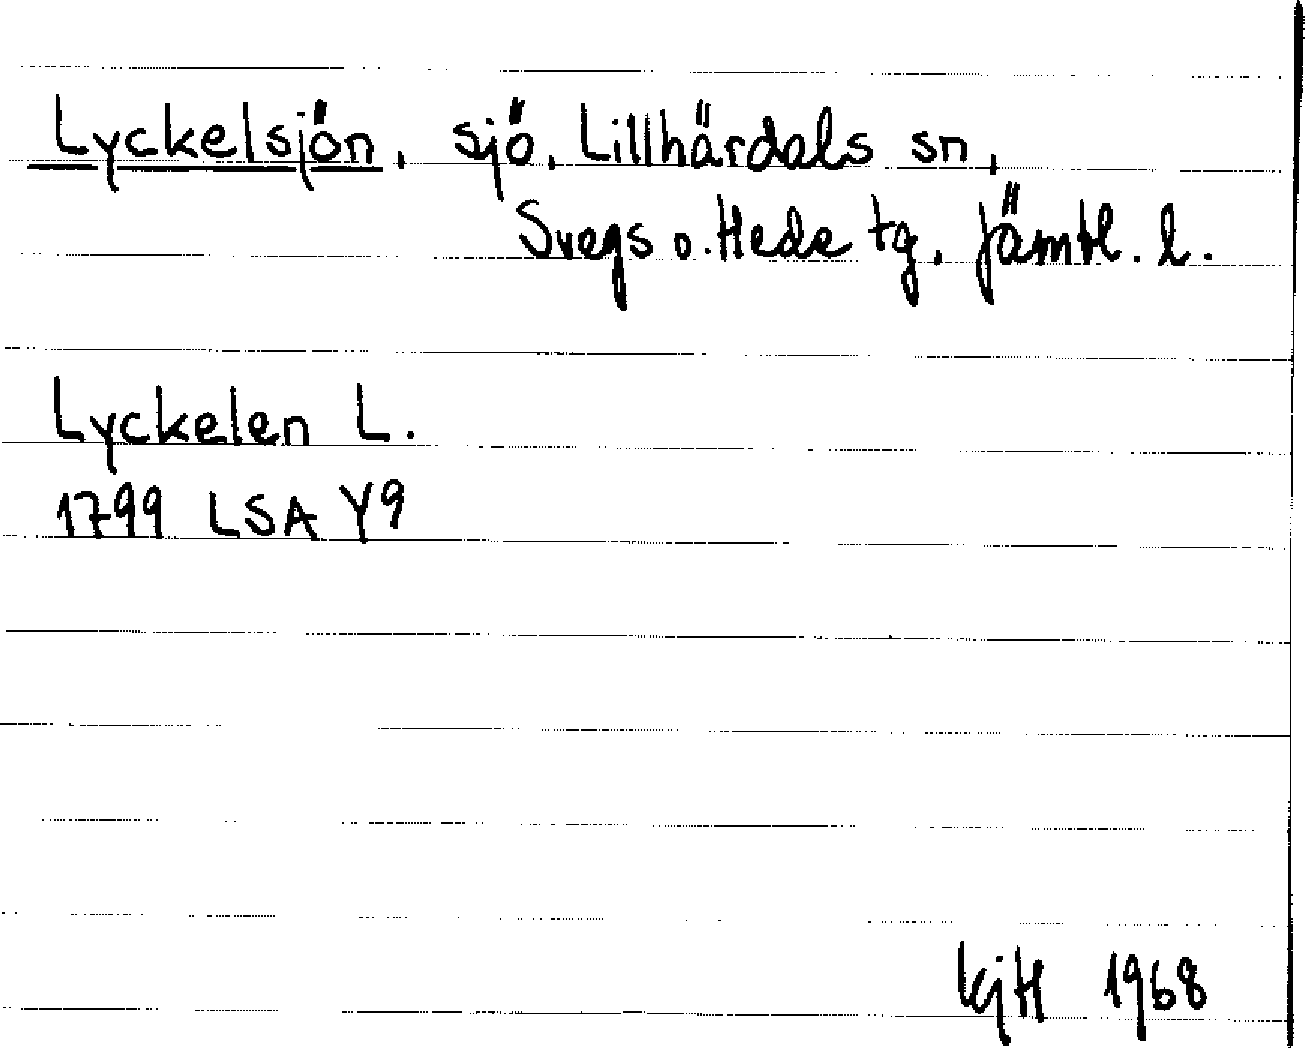 Lyckelsjön, sjö, Lillhärdals sn,
Svegs o. Hede tg, Jämtl. l.
Lyckelen L.
1799 LSA Y9
KjH 1968